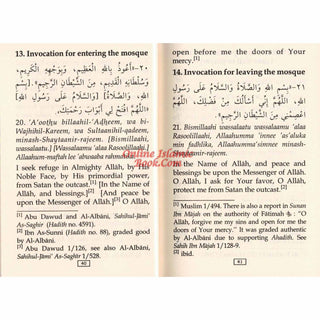 13. Invocation for entering the mosque
٢٠- «أَعُوذُ بِاللَّهِ الْعَظِيمِ، وَبِوَجْهِهِ الْكَرِيمِ،
وَسُلْطَانِهِ الْقَدِيمِ، مِنَ الشَّيْطَانِ الرَّجِيمِ»
[بِسْمِ اللَّهِ، وَالصَّلَاةُ] [وَالسَّلَامُ عَلَى رَسُولِ اللَّهِ]
«اللَّهُمَّ افْتَحْ لِي أَبْوَابَ رَحْمَتِكَ».
20. 'A'oothu billaahil-'Adheem, wa bi-
Wajhihil-Kareem, wa Sultaanihil-qadeem,
minash-Shaytaanir-rajeem. [Bismillaahi,
wassalaatu.] [Wassalaamu 'alaa Rasoolillaahi.]
Allaahum-maftah lee 'abwaaba rahmatik.
I seek refuge in Almighty Allâh, by His
Noble Face, by His primordial power,
from Satan the outcast.[1] [In the Name of
Allâh, and blessings.][2] [And peace be
upon the Messenger of Allâh.][3] O Allâh,
[1] Abu Dawud and Al-Albâni, Sahihul-Jâmi'
As-Saghir (Hadith no. 4591).
[2] Ibn As-Sunni (Hadith no. 88), graded good
by Al-Albâni.
[3] Abu Dawud 1/126, see also Al-Albâni,
Sahihul-Jâmi' As-Saghir 1/528.
40
open before me the doors of Your
mercy.[1]
14. Invocation for leaving the mosque
٢١- «بِسْمِ اللَّهِ وَالصَّلَاةُ وَالسَّلَامُ عَلَى رَسُولِ
اللَّهِ، اللَّهُمَّ إِنِّي أَسْأَلُكَ مِنْ فَضْلِكَ، اللَّهُمَّ
اعْصِمْنِي مِنَ الشَّيْطَانِ الرَّجِيمِ».
21. Bismillaahi wassalaatu wassalaamu 'alaa
Rasoolillaahi, Allaahumma 'innee 'as'aluka
min fadhlika, Allaahumma'simnee minash-
Shaytaanir-rajeem.
In the Name of Allâh, and peace and
blessings be upon the Messenger of Allâh.
O Allâh, I ask for Your favor, O Allâh,
protect me from Satan the outcast.[2]
[1] Muslim 1/494. There is also a report in Sunan
Ibn Mâjah on the authority of Fâtimah : "O
Allâh, forgive me my sins and open for me the
doors of Your mercy." It was graded authentic
by Al-Albâni due to supporting Ahadith. See
Sahih Ibn Mâjah 1/128-9.
[2] ibid.
41
Online Islamic
Book.Com